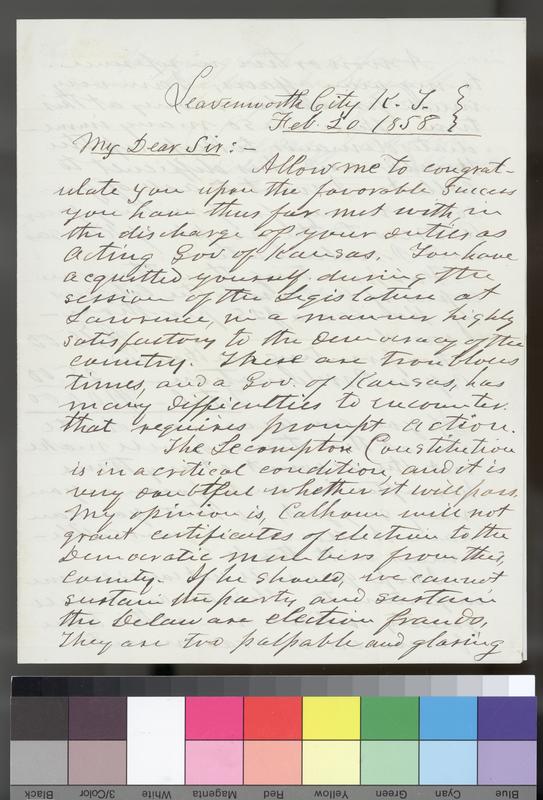 Leavenworth City K. T. }
Feb. 20 1858 }
My Dear Sir:-
Allow me to congrat-
ulate you upon the favorable success
you have thus far met with, in
the discharge of your duties as
Acting Gov of Kansas. You have
acquitted yourself during the
session of the Legislature at
Lawrence, in a manner highly
satisfactory to the Democracy of the
country. These are troublous
times, and a Gov. of Kansas, has
many difficulties to encounter
that requires prompt action.
The Lecompton Constitution
is in a critical condition, and it is
very doubtful whether it will pass.
My opinion is, Calhoun will not
grant certificates of election to the
Democratic members from this,
county. If he should, we cannot
sustain the party and sustain
the Delaware election frauds,
They are two palpable and glaring
Black
3/Color
White
Magenta
Red
Yellow
Green
Cyan
Blue